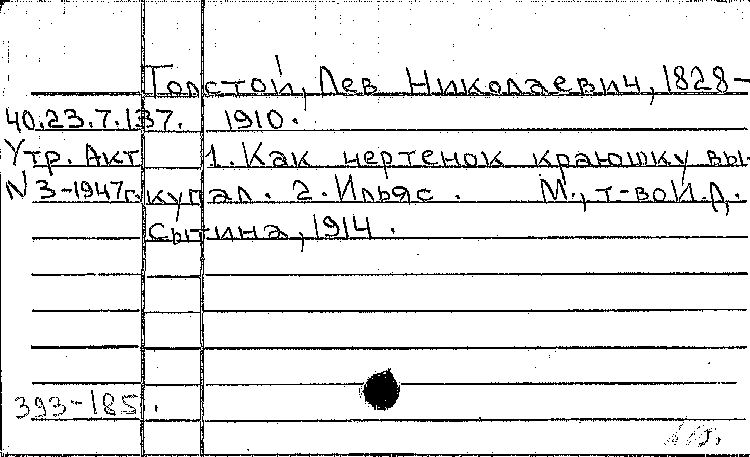 Толстой, Лев Николаевич, 1828-
40.23.7.137. 1910.
Утр. Акт 1. Как чертенок краюшку вы-
N 3-1947г. купал. 2. Ильяс. М., т-во И.Д.
Сытина, 1914.
393-185.